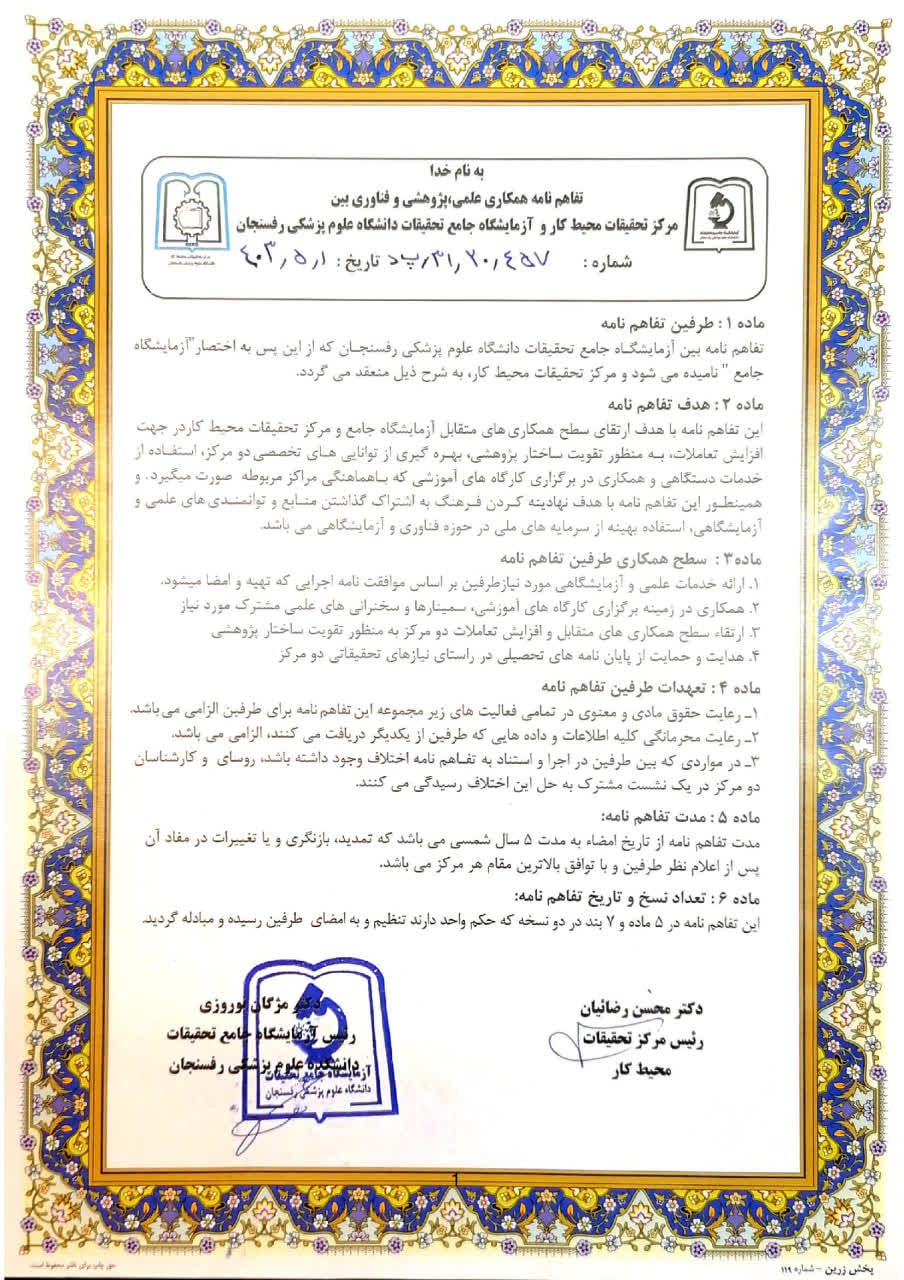 به نام خدا
تفاهم نامه همکاری علمی،پژوهشی و فناوری بین
مرکز تحقیقات محیط کار و آزمایشگاه جامع تحقیقات دانشگاه علوم پزشکی رفسنجان
شماره : ۳۱٫۲۰٫۴۵۷٫پ د تاریخ : ۴۰۳٫۵٫۱
ماده ۱: طرفین تفاهم نامه
تفاهم نامه بین آزمایشگاه جامع تحقیقات دانشگاه علوم پزشکی رفسنجان که از این پس به اختصار"آزمایشگاه
جامع " نامیده می شود و مرکز تحقیقات محیط کار، به شرح ذیل منعقد می گردد.
ماده ۲: هدف تفاهم نامه
این تفاهم نامه با هدف ارتقای سطح همکاری های متقابل آزمایشگاه جامع و مرکز تحقیقات محیط کاردر جهت
افزایش تعاملات، به منظور تقویت ساختار پژوهشی، بهره گیری از توانایی های تخصصی دو مرکز، استفاده از
خدمات دستگاهی و همکاری در برگزاری کارگاه های آموزشی که باهماهنگی مراکز مربوطه صورت میگیرد. و
همینطور این تفاهم نامه با هدف نهادینه کردن فرهنگ به اشتراک گذاشتن منابع و توانمندی های علمی و
آزمایشگاهی، استفاده بهینه از سرمایه های ملی در حوزه فناوری و آزمایشگاهی می باشد.
ماده۳: سطح همکاری طرفین تفاهم نامه
۱. ارائه خدمات علمی و آزمایشگاهی مورد نیازطرفین بر اساس موافقت نامه اجرایی که تهیه و امضا میشود.
۲. همکاری در زمینه برگزاری کارگاه های آموزشی، سمینارها و سخنرانی های علمی مشترک مورد نیاز
۳. ارتقاء سطح همکاری های متقابل و افزایش تعاملات دو مرکز به منظور تقویت ساختار پژوهشی
۴. هدایت و حمایت از پایان نامه های تحصیلی در راستای نیازهای تحقیقاتی دو مرکز
ماده ۴: تعهدات طرفین تفاهم نامه
۱ـ رعایت حقوق مادی و معنوی در تمامی فعالیت های زیر مجموعه این تفاهم نامه برای طرفین الزامی می باشد.
۲ـ رعایت محرمانگی کلیه اطلاعات و داده هایی که طرفین از یکدیگر دریافت می کنند، الزامی می باشد.
۳ـ در مواردی که بین طرفین در اجرا و استناد به تفاهم نامه اختلاف وجود داشته باشد، روسای و کارشناسان
دو مرکز در یک نشست مشترک به حل این اختلاف رسیدگی می کنند.
ماده ۵: مدت تفاهم نامه:
مدت تفاهم نامه از تاریخ امضاء به مدت ۵ سال شمسی می باشد که تمدید، بازنگری و یا تغییرات در مفاد آن
پس از اعلام نظر طرفین و با توافق بالاترین مقام هر مرکز می باشد.
ماده ۶: تعداد نسخ و تاریخ تفاهم نامه:
این تفاهم نامه در ۵ ماده و ۷ بند در دو نسخه که حکم واحد دارند تنظیم و به امضای طرفین رسیده و مبادله گردید.
دکتر محسن رضائیان
رئیس مرکز تحقیقات
محیط کار
دکتر مژگان نوروزی
رئیس آزمایشگاه جامع تحقیقات
دانشکده علوم پزشکی رفسنجان
آزمایشگاه جامع تحقیقات
دانشگاه علوم پزشکی رفسنجان
1
پخش زرین - شماره ۱۱۹
حق چاپ برای ناشر محفوظ است.